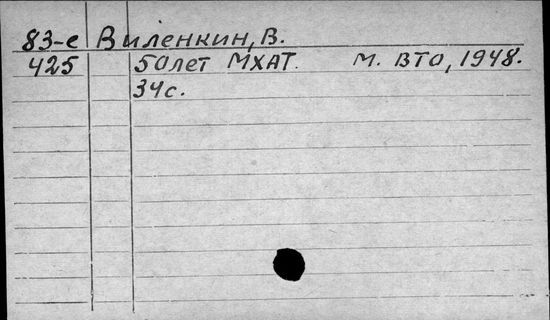 83-е Виленкин, В.
425 50 лет МХАТ. М. ВТО, 1948.
34с.